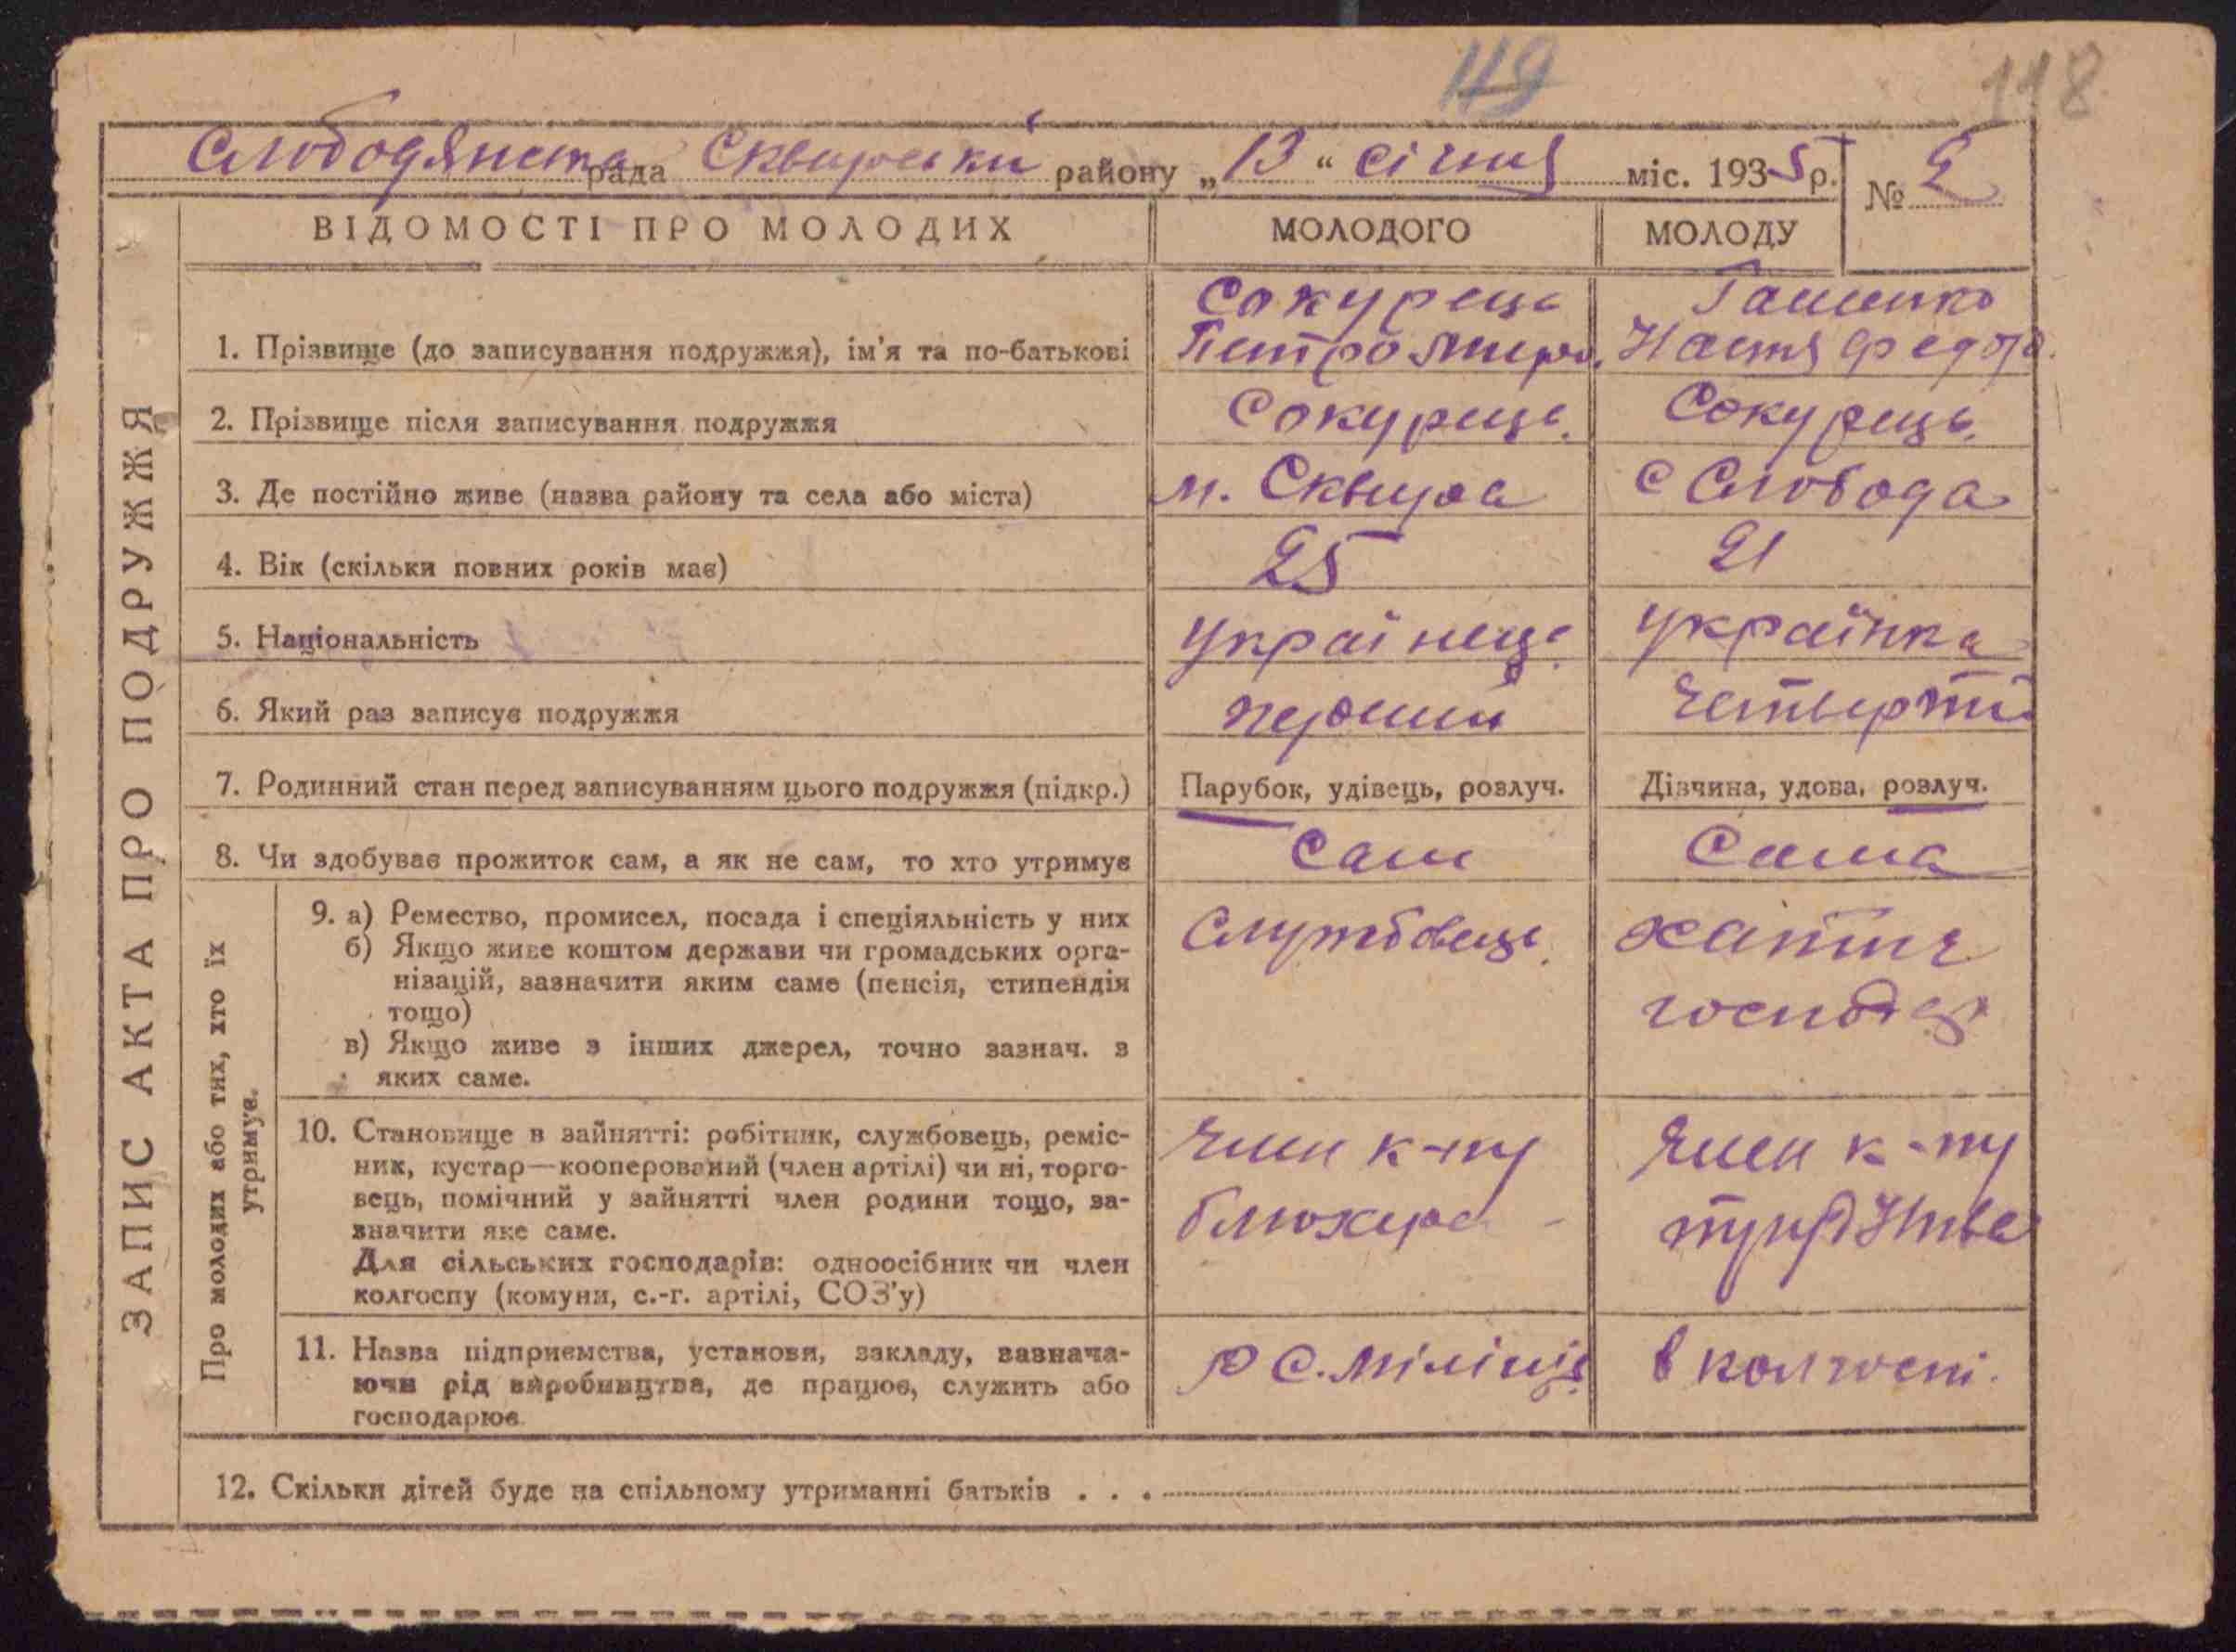 119
118
Слободянська рада Сквирський району „13“ січня міс. 1935 р. № 2
ВІДОМОСТІ ПРО МОЛОДИХ МОЛОДОГО МОЛОДУ
Сокурець
1. Прізвище (до записування подружжя), ім'я та по-батькові Петро Настя Федор.
2. Прізвище після записування подружжя Сокурець. Сокурець.
3. Де постійно живе (назва району та села або міста) м. Сквира с Слобода
4. Вік (скільки повних років має) 25 21
5. Національність Українець. українка
6. Який раз записує подружжя перший Четвертий
7. Родинний стан перед записуванням цього подружжя (підкр.) Парубок, удівець, розлуч. Дівчина, удова, розлуч.
8. Чи здобуває прожиток сам, а як не сам, то хто утримує Сам Сама
ЗАПИС АКТА ПРО ПОДРУЖЖЯ
Про молодих або тих, хто їх утримує.
9. а) Ремество, промисел, посада і спеціяльність у них Службовець. хатнє
б) Якщо живе коштом держави чи громадських орга-
нізацій, зазначити яким саме (пенсія, стипендія господ
тощо)
в) Якщо живе з інших джерел, точно зазнач. з
яких саме.
10. Становище в зайнятті: робітник, службовець, реміс- член к-пу член к-пу
ник, кустар—кооперований (член артілі) чи ні, торго-
вець, помічний у зайнятті член родини тощо, за- блюхера
значити яке саме.
Для сільських господарів: одноосібник чи член
колгоспу (комуни, с.-г. артілі, СОЗ'у)
11. Назва підприємства, установи, закладу, зазнача- Р С. міліція. в колгоспі.
ючи рід виробництва, де працює, служить або
господарює.
12. Скільки дітей буде на спільному утриманні батьків . . .